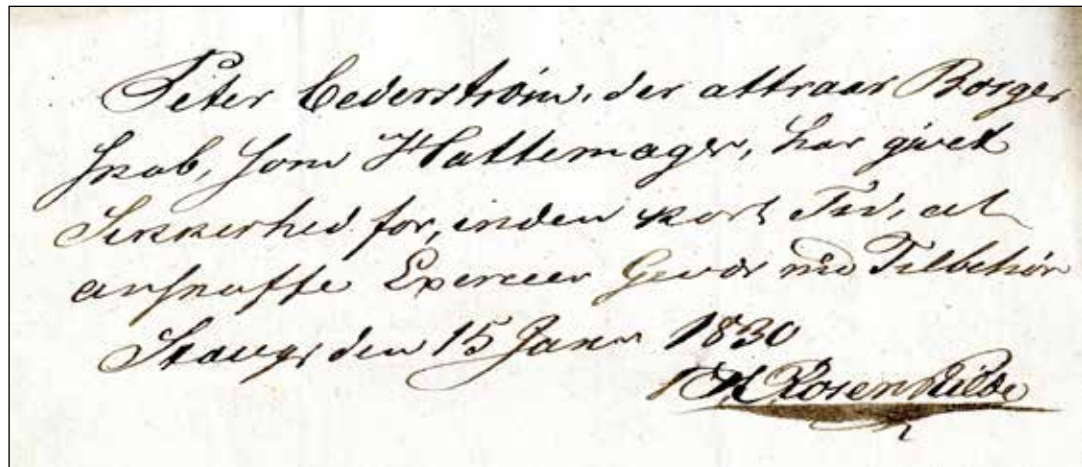 Peter Cederström, der attraar Borger
skab, som Hattemager, har givet
Sikkerhed for, inden kort Tid, at
anskaffe Exerceer Gevær med Tilbehör
Stavgr den 15 Janr 1830
Rosenkilde